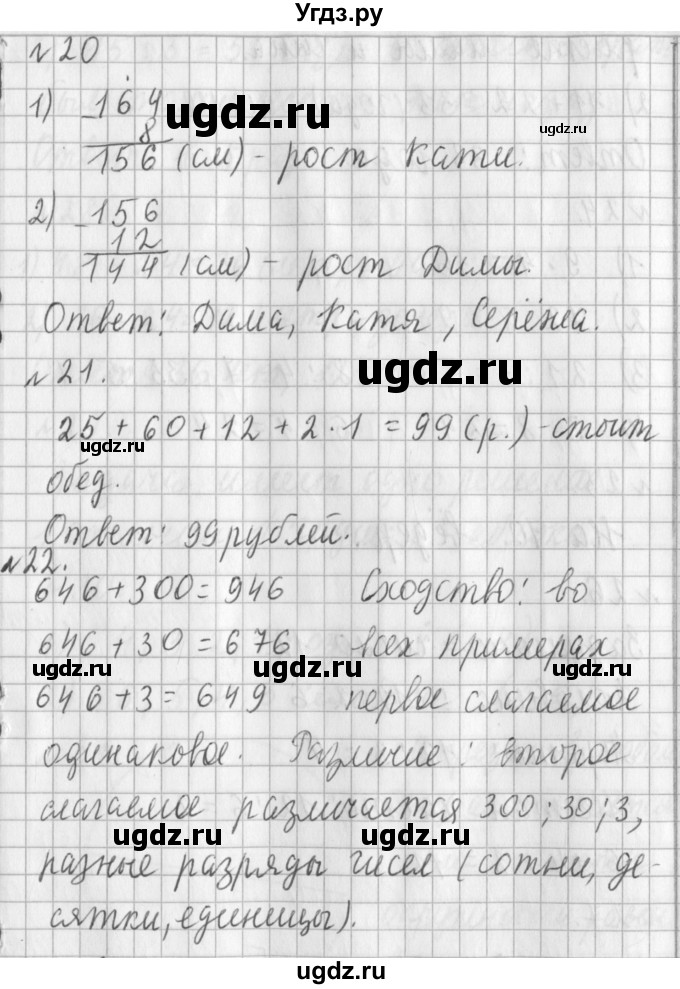 Угдз.ру
№ 20
1) -164
ugdz.ru
8
ugdz.ru
156 (см) - рост Кати.
2) -156
12
144 (см) - рост Димы.
ugdz.ru
Ответ: Дима, Катя, Серёжа.
ugdz.ru
№ 21.
25 + 60 + 12 + 2 · 1 = 99 (р.) - стоит
ugdz.ru
обед.
Ответ: 99 рублей.
№ 22.
646 + 300 = 946 Сходство: во
646 + 30 = 676 всех примерах
ugdz.ru ugdz.ru
646 + 3 = 649 первое слагаемое
одинаковое. Различие: второе
слагаемое различается 300; 30; 3,
ugdz.ru ugdz.ru
разные разряды чисел (сотни, де-
сятки, единицы).
ugdz.ru